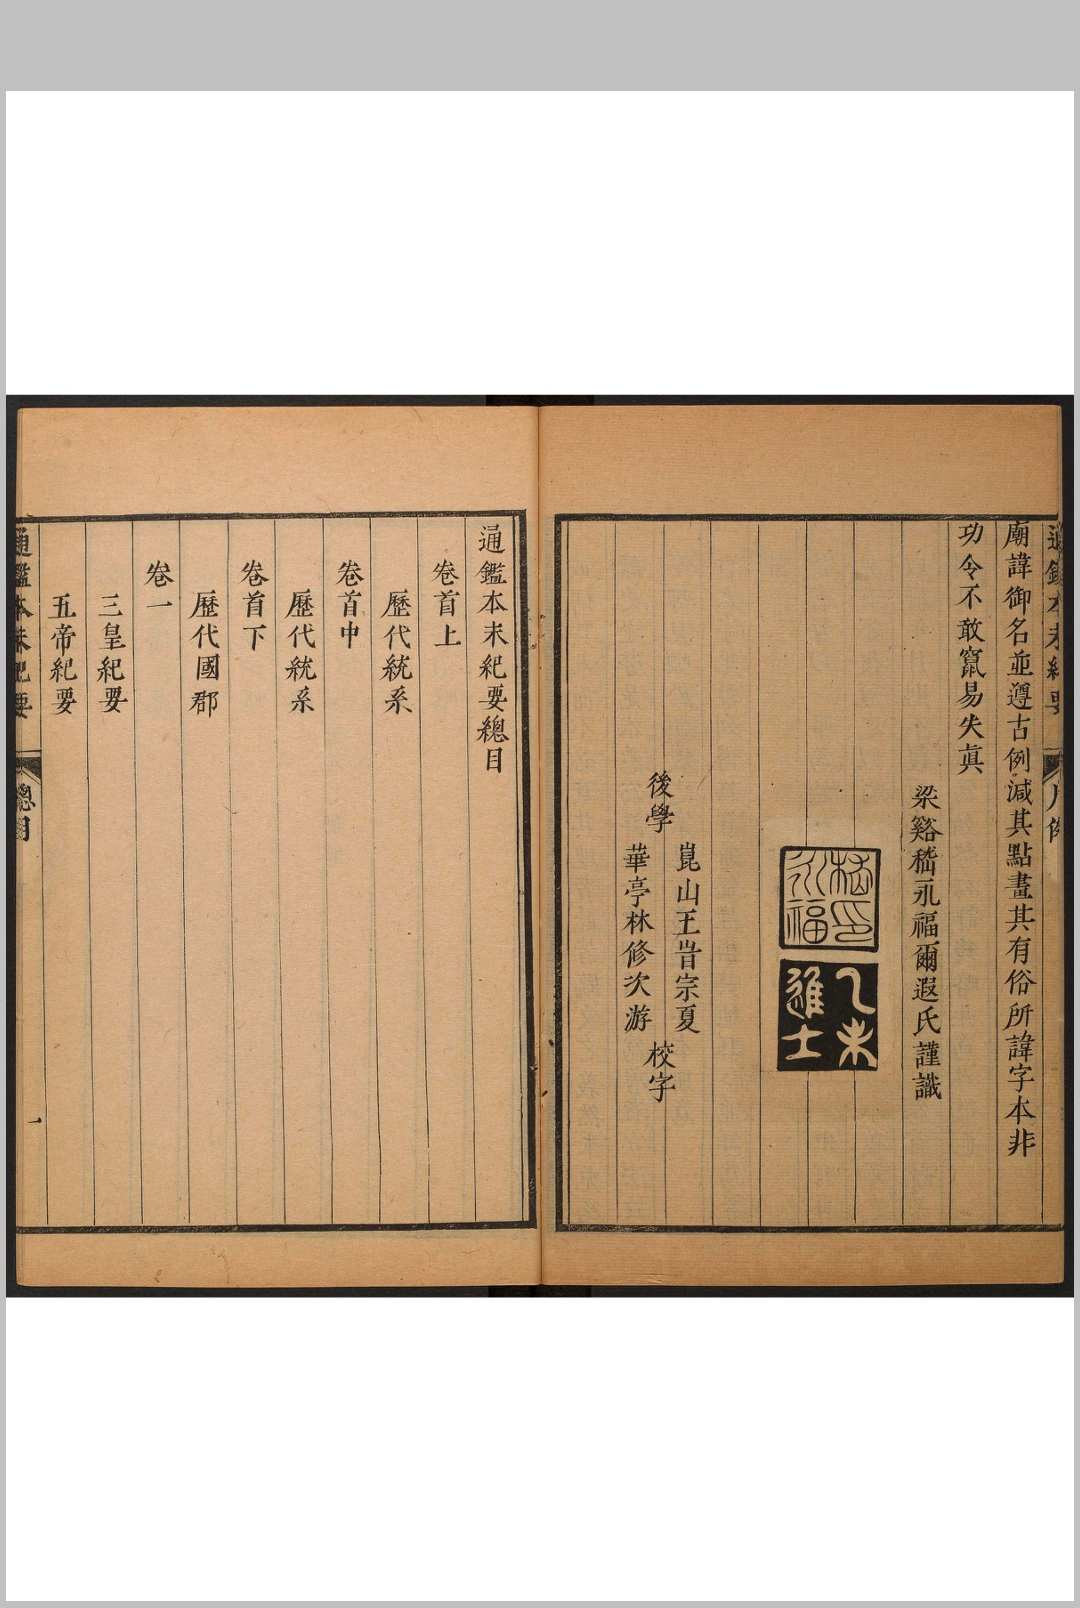 通鑑本末紀要 凡例
廟諱御名並遵古例減其點畫其有俗所諱字本非
功令不敢竄易失眞
梁谿嵇永福爾遐氏謹識
嵇印
永福
乙未
進士
後學
崑山王旹宗夏
華亭林修次游
校字
通鑑本末紀要總目
卷首上
歷代統系
卷首中
歷代統系
卷首下
歷代國郡
卷一
三皇紀要
五帝紀要
通鑑本末紀要 總目 一